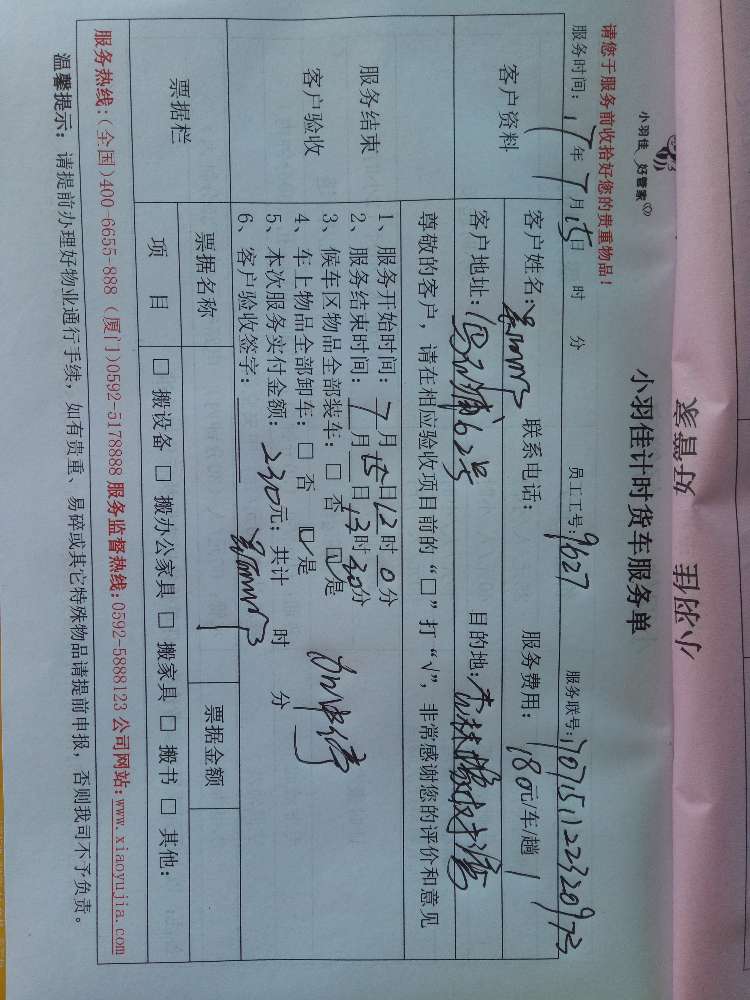 好管家 小羽佳
小羽佳 好管家
小羽佳计时货车服务单
请您于服务前收拾好您的贵重物品！
服务时间：17年7月15日 时 分 员工工号：9627 服务联号：
客户资料 客户姓名： 联系电话： 服务费用：180元/车/趟
客户地址： 62号 目的地：
尊敬的客户，请在相应验收项目前的“□”打“√”，非常感谢您的评价和意见
服务结束
客户验收
1、服务开始时间：7月15日12时0分
2、服务结束时间：7月15日13时20分
3、候车区物品全部装车：□ 否 ☑ 是
4、车上物品全部卸车：□ 否 ☑ 是
5、本次服务实付金额：230元；共计 时 分
6、客户验收签字：
票据栏 票据名称 票据金额
项 目 □ 搬设备 □ 搬办公家具 □ 搬家具 □ 搬书 □ 其他：
服务热线：(全国)400-6655-888 (厦门)0592-5178888 服务监督热线：0592-5888123 公司网站：www.xiaoyujia.com
温馨提示：请提前办理好物业通行手续，如有贵重、易碎或其它特殊物品请提前申报，否则我司不予负责。